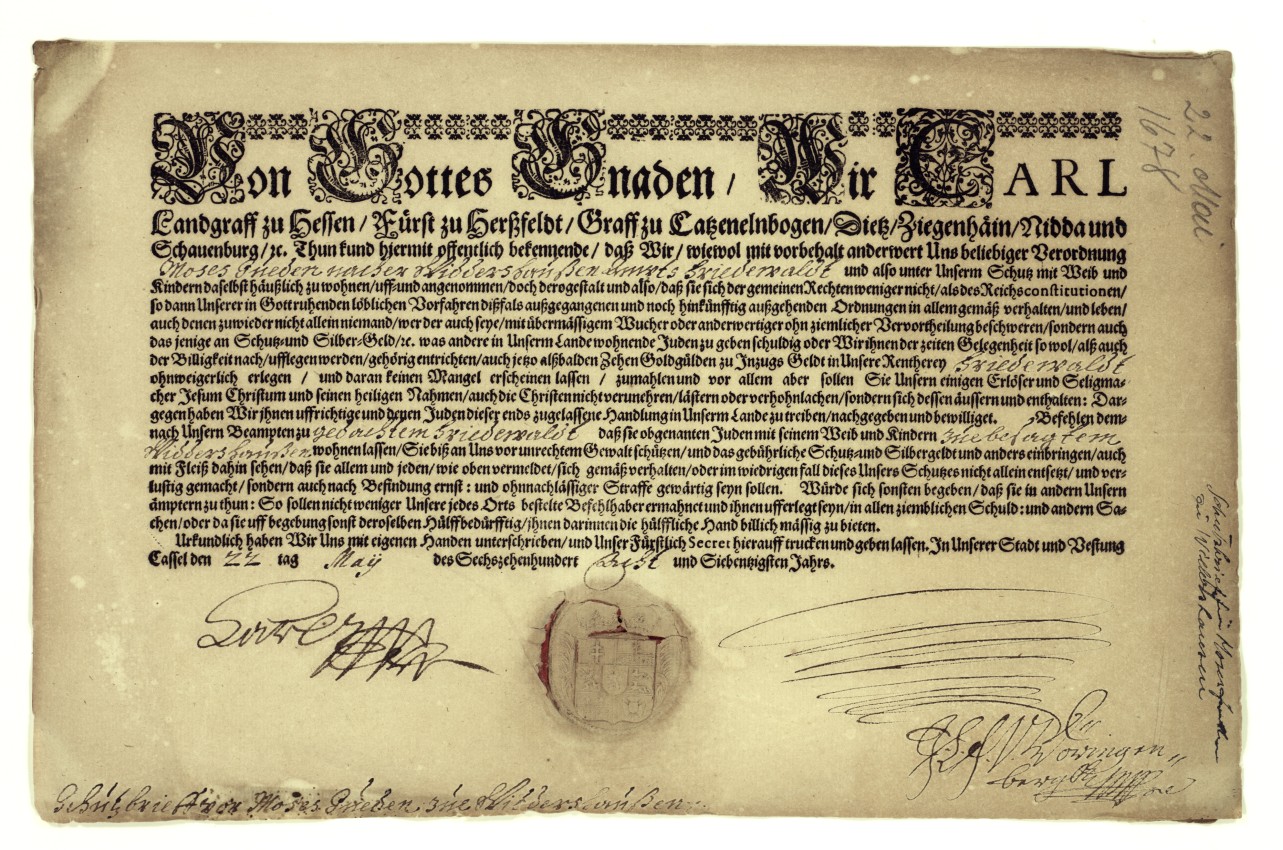 Von Gottes Gnaden / Wir CARL
Landgraff zu Hessen / Fürst zu Herßfeldt / Graff zu Catzenelnbogen / Dietz / Ziegenhäin / Nidda und
Schauenburg / ꝛc. Thun kund hiermit offentlich bekennende / daß Wir / wiewol mit vorbehalt anderwert Uns beliebiger Verordnung
Moses Jueden naher Widdershaußen Ambts Friedewaldt und also unter Unserm Schutz mit Weib und
Kindern daselbst häußlich zu wohnen / uff und angenommen / doch derogestalt und also / daß sie sich der gemeinen Rechten weniger nicht / als des Reichs constitutionen /
so dann Unserer in Gott ruhenden löblichen Vorfahren dißfals außgegangenen und noch hinkünfftig außgehenden Ordnungen in allem gemäß verhalten / und leben /
auch denen zuwieder nicht allein niemand / wer der auch seye / mit übermässigem Wucher oder anderwertiger ohn ziemlicher Vervortheilung beschweren / sondern auch
das jenige an Schutz- und Silber-Geld / ꝛc. was andere in Unserm Lande wohnende Juden zu geben schuldig oder Wir ihnen der zeiten Gelegenheit so wol / alß auch
der Billigkeit nach / ufflegen werden / gehörig entrichten / auch jetzo alßbalden Zehen Goldgülden zu Inzugs Geldt in Unsere Rentherey Friedewaldt
ohnweigerlich erlegen / und daran keinen Mangel erscheinen lassen / zumahlen und vor allem aber sollen Sie Unsern einigen Erlöser und Seligma-
cher Jesum Christum und seinen heiligen Nahmen / auch die Christen nicht verunehren / lästern oder verhohnlachen / sondern sich dessen äussern und enthalten: Dar-
gegen haben Wir jhnen uffrichtige und denen Juden dieser ends zugelassene Handlung in Unserm Lande zu treiben / nachgegeben und bewilliget. Befehlen dem-
nach Unsern Beampten zu gedachtem Friedewaldt daß sie obgenanten Juden mit seinem Weib und Kindern zue besagtem
Widdershaußen wohnen lassen / Sie biß an Uns vor unrechtem Gewalt schützen / und das gebührliche Schutz- und Silbergeld und anders einbringen / auch
mit Fleiß dahin sehen / daß sie allem und jeden / wie oben vermeldet / sich gemäß verhalten / oder im wiedrigen fall dieses Unsers Schutzes nicht allein entsetzt / und ver-
lustig gemacht / sondern auch nach Befindung ernst: und ohnnachlässiger Straffe gewärtig seyn sollen. Würde sich sonsten begeben / daß sie in andern Unsern
ämptern zu thun: So sollen nicht weniger Unsere jedes Orts bestelte Befehlhaber ermahnet und ihnen ufferlegt seyn / in allen ziemlichen Schuld: und andern Sa-
chen / oder da sie uff begebung sonst deroselben Hülff bedürfftig / jhnen darinnen die hülffliche Hand billich mässig zu bieten.
Urkundlich haben Wir Uns mit eigenen Handen unterschrieben / und Unser Fürstlich Secret hierauff trucken und geben lassen. In Unserer Stadt und Vestung
Cassel den 22 tag Maÿ des Sechszehenhundert Acht und Siebentzigsten Jahrs.
Carl
Schutzbrieff vor Moses Jueden zue Widdershaußen
22. Mai
1678